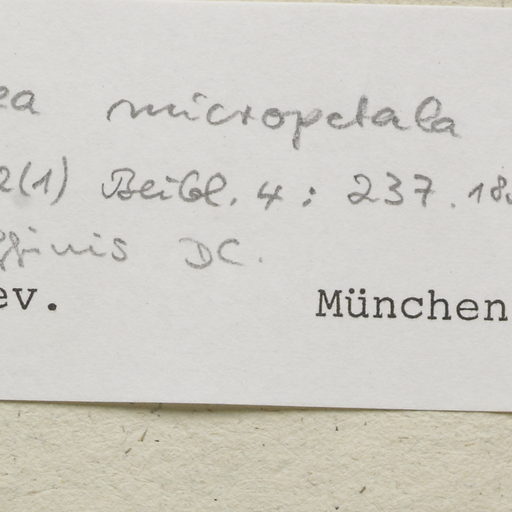 ea micropetala
2(1) Beibl. 4: 237. 18
ffinis DC.
ev. München